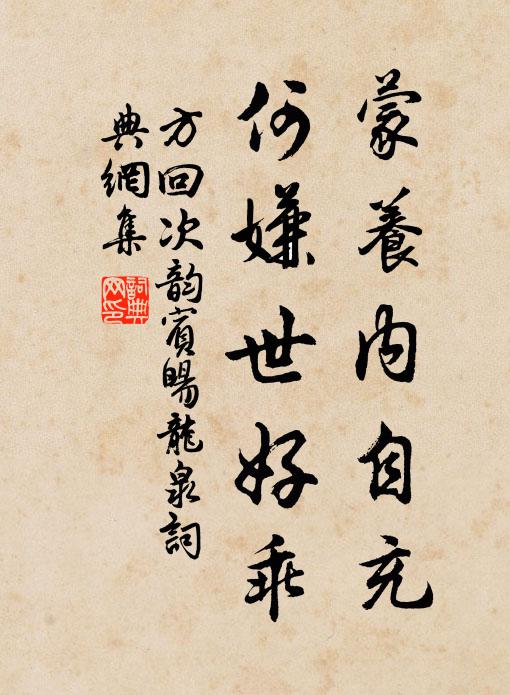 蒙養内自充
何嫌世好乖
方回次韵賓暘龍泉詞
典網集
詞典網印